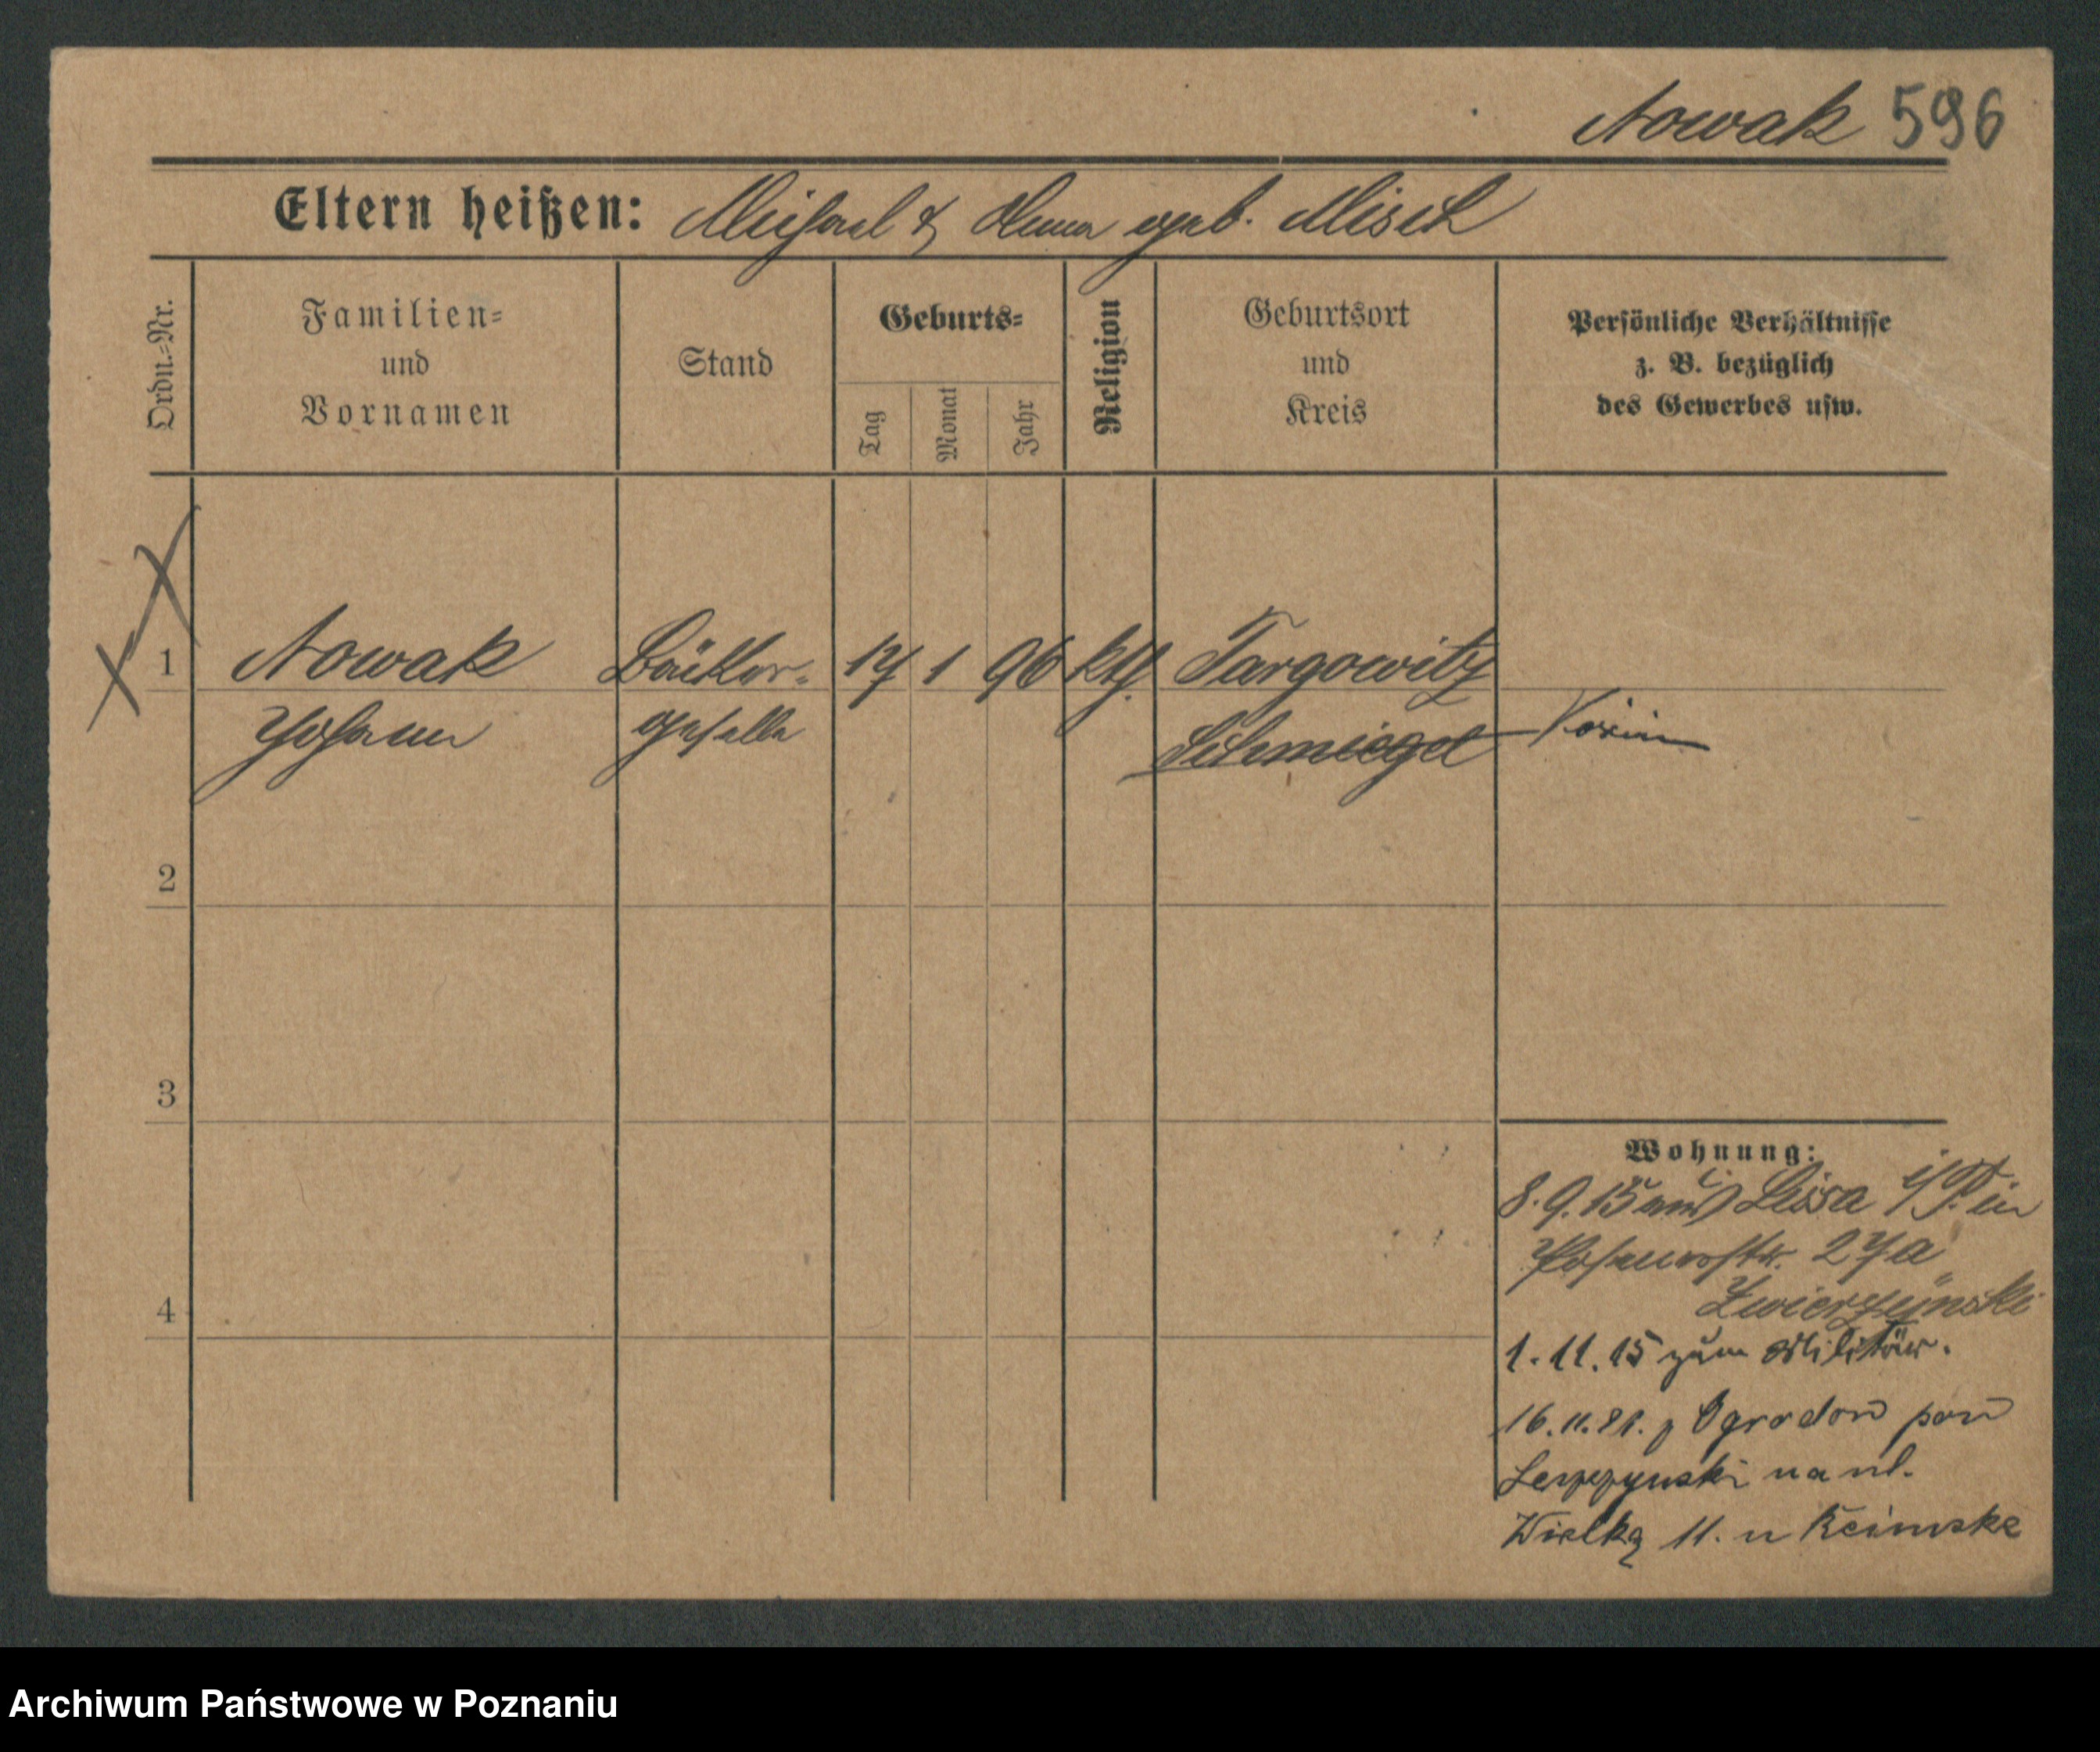 Nowak 596
Eltern heißen: Michael & Anna geb. Misch
Ordn.-Nr.
Familien-
und
Vornamen
Stand
Geburts-
Tag
Monat
Jahr
Religion
Geburtsort
und
Kreis
Persönliche Verhältnisse
z. B. bezüglich
des Gewerbes usw.
1 Nowak Bäcker- 17 1 96 kth. Targowitz
Johann geselle Schmiegel
2
3
4
Wohnung:
8.9.15 aus Lissa i/P. in
Posenerstr. 27a
Zwierzynski
1.11.15 zum Militär.
16.11.21. z Ogrodow pow
Leszczynski na ul.
Wielką 11. u
Archiwum Państwowe w Poznaniu